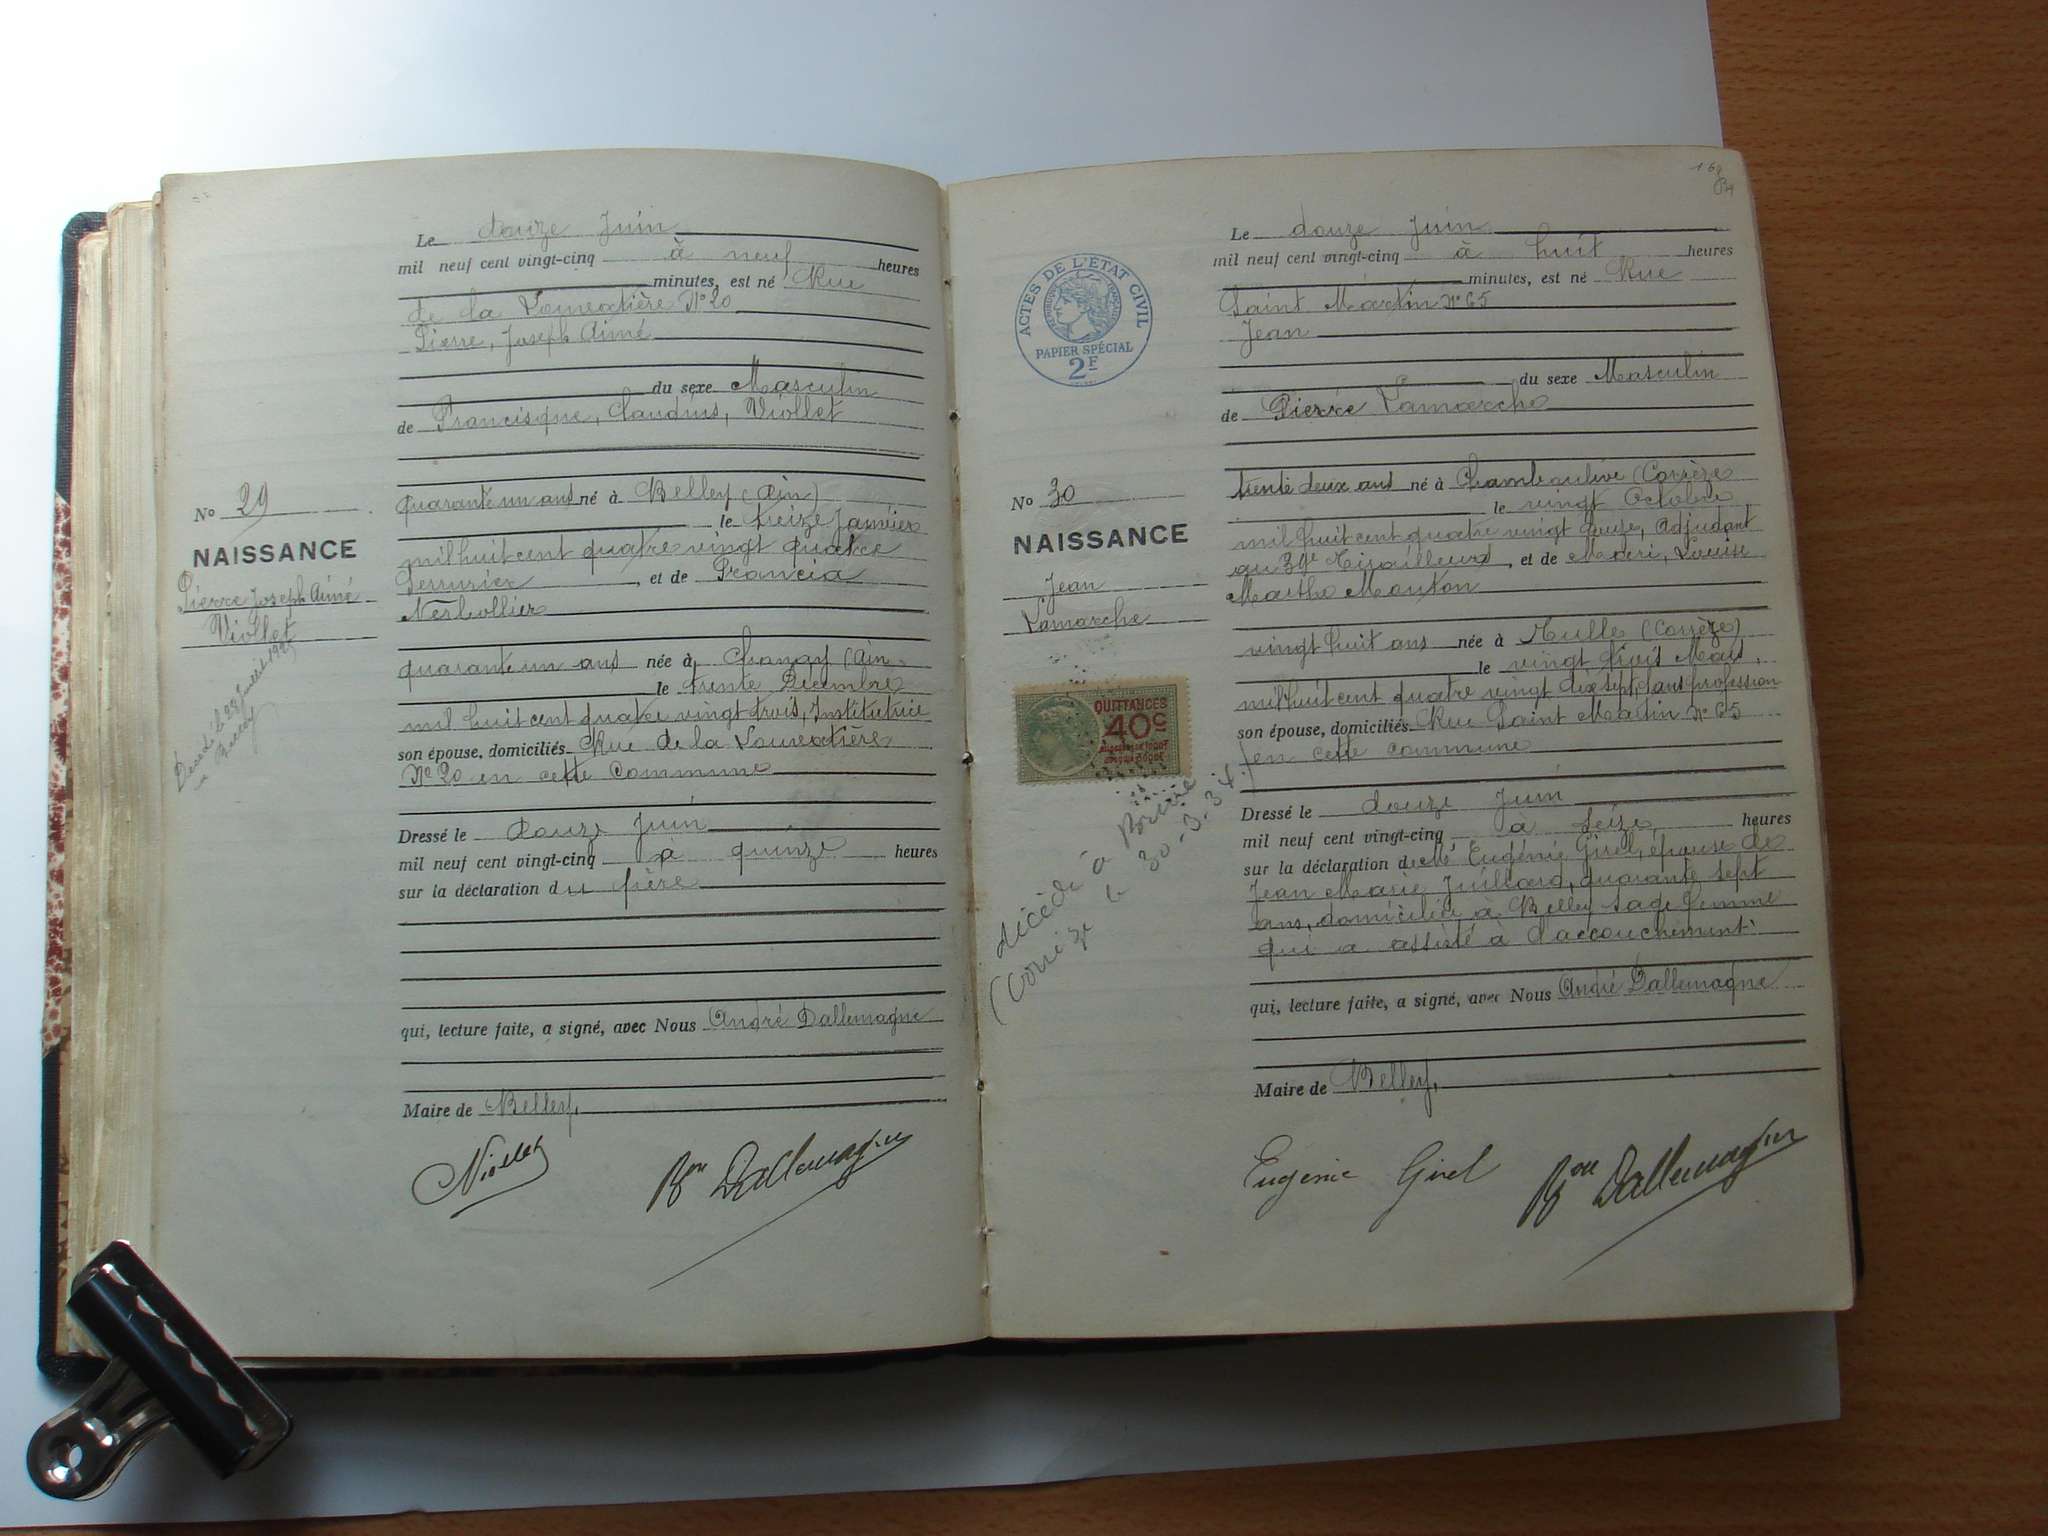 Le douze Juin
mil neuf cent vingt-cinq à neuf heures
minutes, est né Rue
de la Louvatière N° 20
Pierre, Joseph Aimé
du sexe Masculin
de Francisque, Claudius, Viollet
quarante un ans né à Belley (Ain)
le treize Janvier
mil huit cent quatre vingt quatre
Serrurier, et de Francia
quarante un ans née à Chanay (Ain
le trente Décembre
mil huit cent quatre vingt trois, Institutrice
son épouse, domiciliés Rue de la Louvatière
N° 20 en cette commune
Dressé le douze Juin
mil neuf cent vingt-cinq à quinze heures
sur la déclaration du père
qui, lecture faite, a signé, avec Nous André Dallemagne
Maire de Belley.
Viollet
Bon Dallemagne
No 29
NAISSANCE
Pierre Joseph Aimé
Viollet
Décédé le 28 Juillet 1925
à
168
ACTES DE L'ÉTAT CIVIL
PAPIER SPÉCIAL
2F
Le douze Juin
mil neuf cent vingt-cinq à huit heures
minutes, est né Rue
Saint Martin N° 65
Jean
du sexe Masculin
de Pierre Lamarche
trente deux ans né à Chamboulive (Corrèze
le vingt Octobre
mil huit cent quatre vingt douze, Adjudant
au 39e Tirailleurs, et de Louise
Marthe Mouton
vingt huit ans née à Tulle (Corrèze)
le vingt trois Mars,
mil huit cent quatre vingt dix sept, sans profession
son épouse, domiciliés Rue Saint Martin N° 65
en cette commune
Dressé le douze Juin
mil neuf cent vingt-cinq à seize heures
sur la déclaration de Eugénie Girel, épouse de
Jean Marie Juillard, quarante sept
ans, domiciliée à Belley sage femme
qui a assisté à l'accouchement.
qui, lecture faite, a signé, avec Nous André Dallemagne
Maire de Belley.
Eugénie Girel
Bon Dallemagne
No 30
NAISSANCE
Jean
Lamarche
QUITTANCES
40c
décédé à
(Corrèze le 30-3-34.)